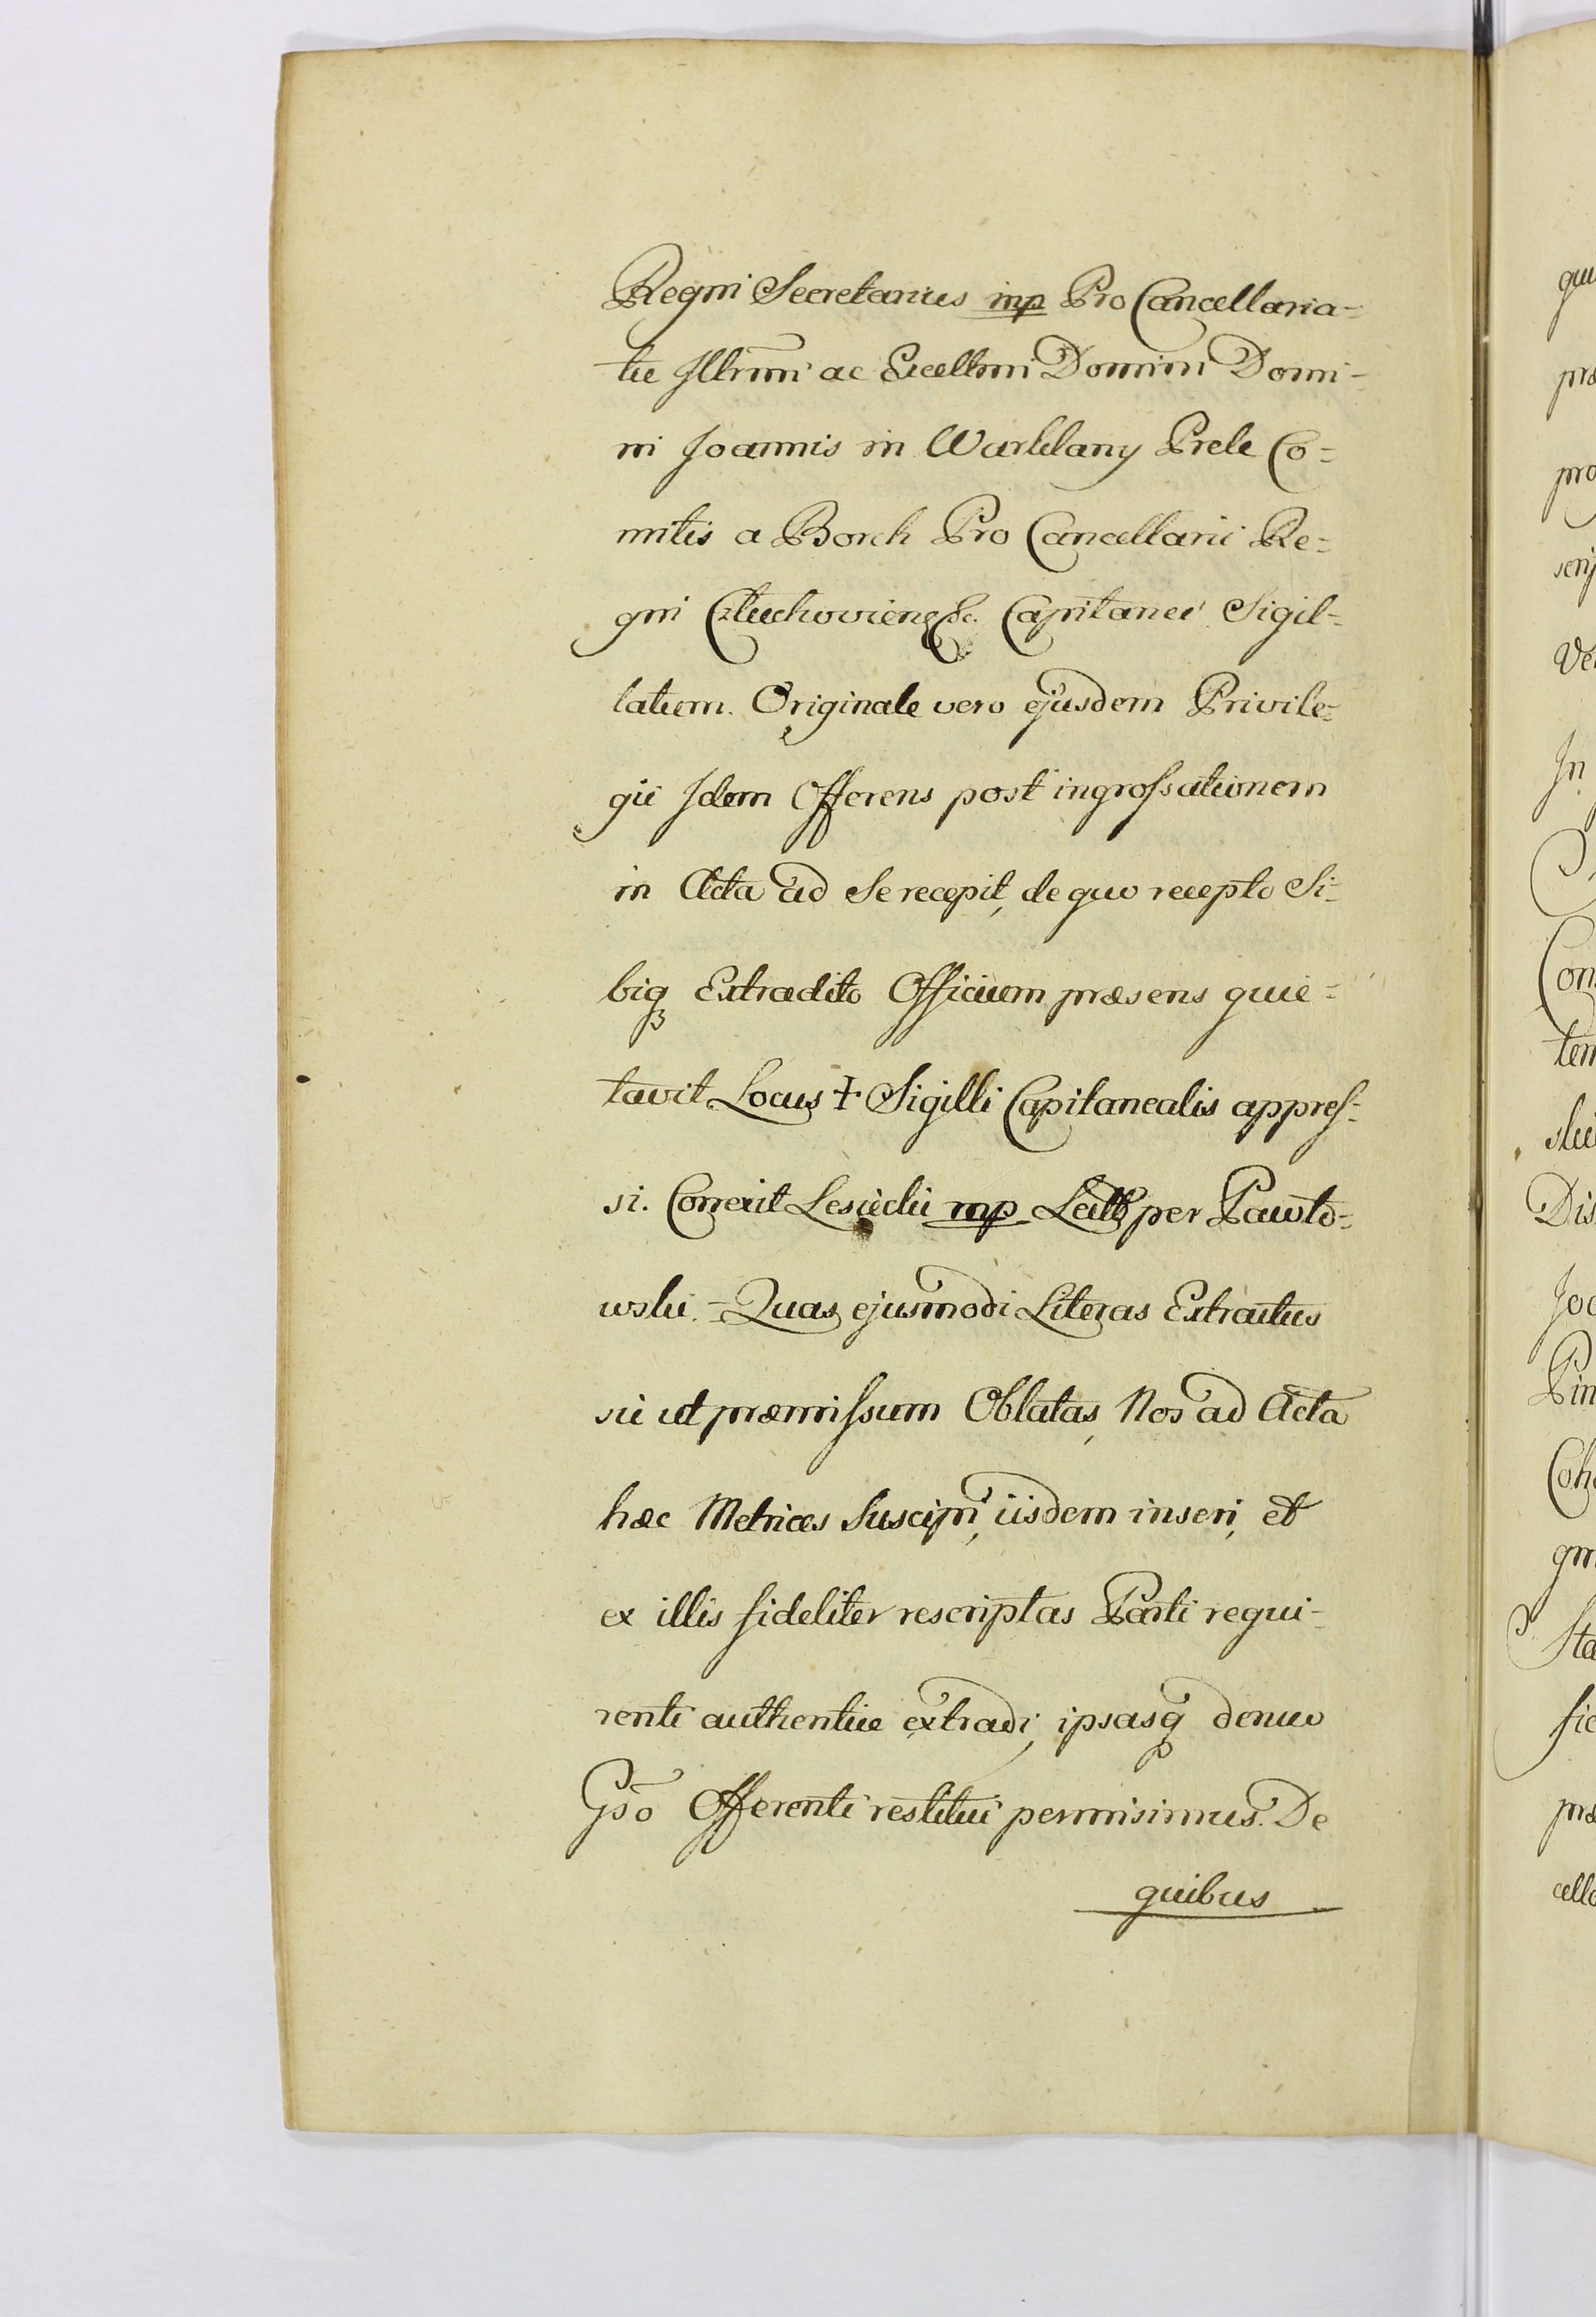 Regni Secretarius mp Pro Cancellaria-
tu Illrmi ac Excellmi Domini Domi-
ni Joannis in Warklany Prele Co-
mitis a Borch Pro Cancellarii Re-
gni Człuchovien &c. Capitanei Sigil-
latum. Originale vero ejusdem Privile-
gii Idem Offerens post ingrossationem
in Acta ad Se recepit, de quo recepto Si-
biq Extradito Officium præsens quie-
tavit Locus ☩ Sigilli Capitanealis appres-
si. Correxit Lesicki mp Lectt per Pawło-
wski. = Quas ejusmodi Literas Extractus
uti præmissum Oblatas, Nos ad Acta
hæc Metrices Suscipi, iisdem inseri, et
ex illis fideliter rescriptas Parti requi-
renti authentice extradi, ipsasq denuo
Gso Offerenti restitui permisimus. De
quibus
qui
præ
pro
scrip
Ve
In
Con
tem
Dis
Joa
Pin
Coh
gni
Sta
fic
præ
cella